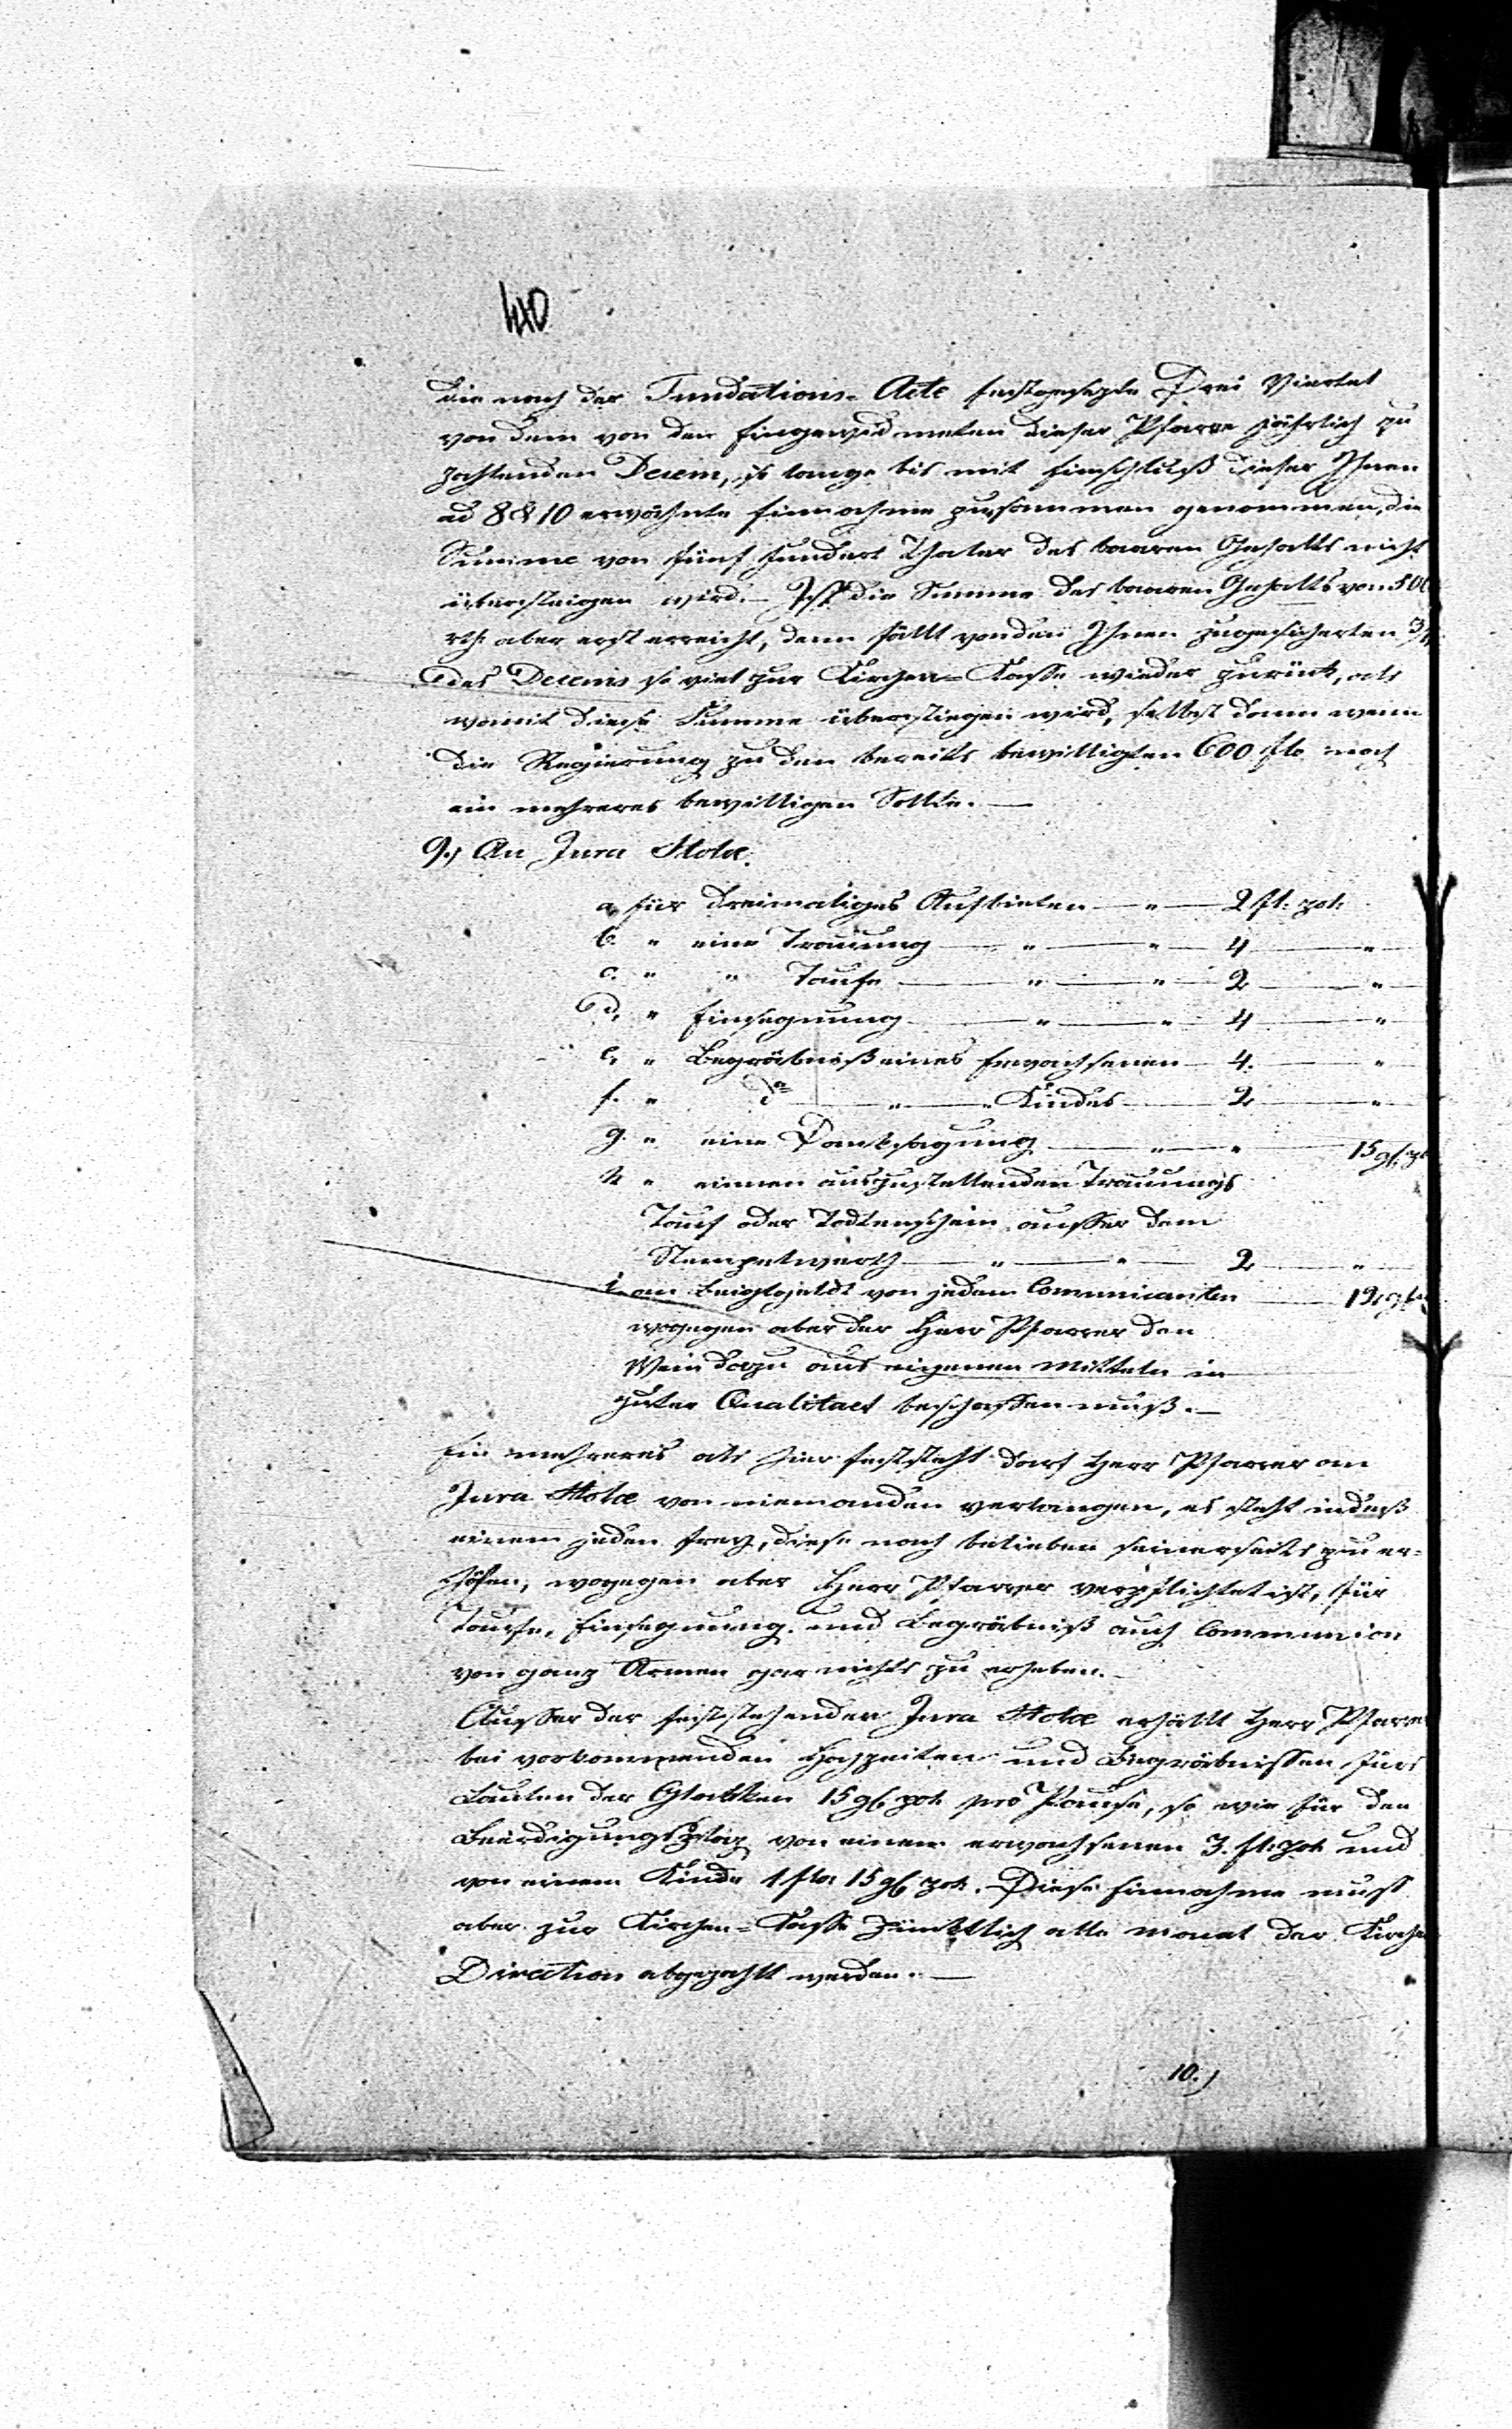 40
die nach der Fundations-Acte festgesezte Drei Viertel
von dem von den Eingewidmeten dieser Pfarre jährlich zu
zahlenden Decem, so lange bis mit Einschluß dieser Ihnen
ad 8 & 10 erwähnte Einnahme zusammen genommen, die
Summe von fünf hundert Thaler des baaren Gehalts nicht
übersteigen wird. – Ist die Summe des baaren Gehalts von 500
rth. aber erst erreicht, denn fällt von den Ihnen zugesicherten 3/4
des Decems so viel zur Kirchen-Kasse wieder zurück, als
womit diese Summe überstiegen wird, selbst dann wenn
die Regierung zu den bereits bewilligten 600 flo noch
ein mehreres bewilligen Sollte. —
9.) An Jura Stolæ.
a, für dreimaliges Aufbieten — " — 2 fl: pol:
b. " eine Trauung — " — " — 4 — "
c. " " Taufe — " — " — 2 — "
d, " Einsegnung — " — " — 4 — "
e, " Begräbniß eines Erwachsenen — 4. — "
f. " do — " — " Kindes — 2 — "
g. " eine Danksagung — " — " — 15 gl. pol
h " einen auszustellenden Trauungs
Tauf oder Todtenschein ausser dem
Stempelwerth — " — " — 2 — "
i. an Beigtgeldt von jedem Communicanten — 12 gl.
wogegen aber der Herr Pfarrer den
Wein dazu aus eigenen Mitteln in
guter Qualitaet beschaffen muß. —
Ein mehreres als hier feststeht darf Herr Pfarrer an
Jura Stolæ von niemanden verlangen, es steht indeß
einem jeden frey, diese nach belieben seinerseits zu er-
höhen, wogegen aber Herr Pfarrer verpflichtet ist, für
Taufe, Einsegnung und Begräbniß auch Communion
von ganz Armen gar nichts zu erheben. —
Ausser der feststehenden Jura Stolæ erhällt Herr Pfarrer
bei vorkommenden Hochzeiten und Begräbnissen fürs
Läuten der Glocken 15 gl. pol. pro Pause, so wie für den
Beerdigungsplaz von einem erwachsenen 3. fl: pol: und
von einem Kinde 1 flo 15 gl. pol. Diese Einnahme muss
aber zur Kirchen-Kasse pünktlich alle Monat der Kirchen
Direction abgezahlt werden. —
10.)